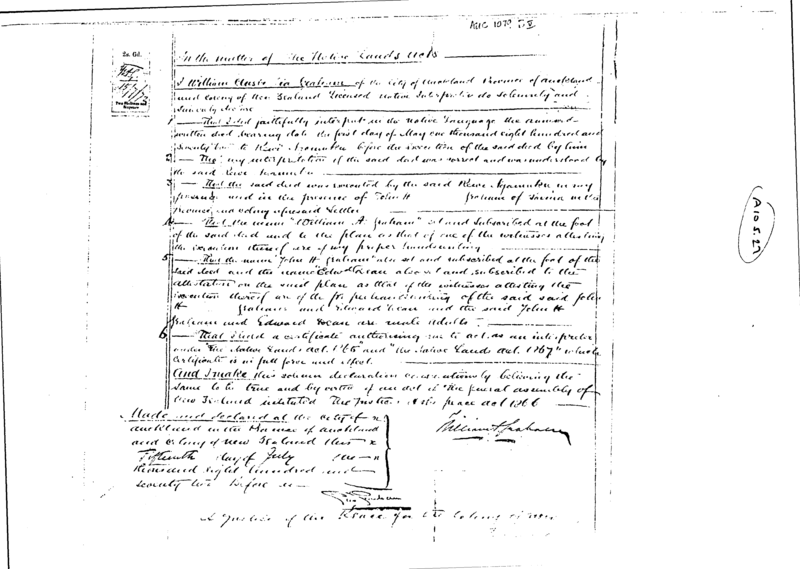 AIIC 1079
2s. 6d.
In the matter of The Native Lands Acts
I William Austin Graham of the City of Auckland Province of Auckland
and colony of New Zealand Licensed Native Interpreter do solemnly and
sincerely declare
1 That I did faithfully interpret in the native language the
written deed bearing date the first day of May one thousand eight hundred and
seventy two to before the execution of the said deed by him
2 my interpretation of the said deed was correct and was understood by
the said
3 That the said deed was executed by the said in my
presence and in the presence of John H Graham of in the
Province and colony aforesaid Settler
4 That the name "William A. Graham" set and subscribed at the foot
of the said deed and to the plan as that of one of the witnesses attesting
the execution thereof are of my proper handwriting
5 That the name "John H Graham" also set and subscribed at the foot of the
said deed and the name "Edward Dean also set and subscribed to the
attestation on the said plan as that of the witnesses attesting the
execution thereof are of the handwriting of the said said John
H Graham and Edward Dean and the said John H
Graham and Edward Dean are male adults
6 That I hold a certificate authorising me to act as an interpreter
under "The Native Lands Act. 1865" and "the Native Lands Act. 1867" which
certificate is in full force and effect.
And I make this solemn declaration conscientiously believing the
same to be true and by virtue of an act of the general assembly of
New Zealand intituled The Justices of the peace act 1866
Made and declared at the City of
Auckland in the Province of Auckland
and Colony of New Zealand this
Fifteenth day of July one
thousand eight hundred and
seventy two before me
William A Graham
A Justice of the Peace for the Colony of New
A10 5.27